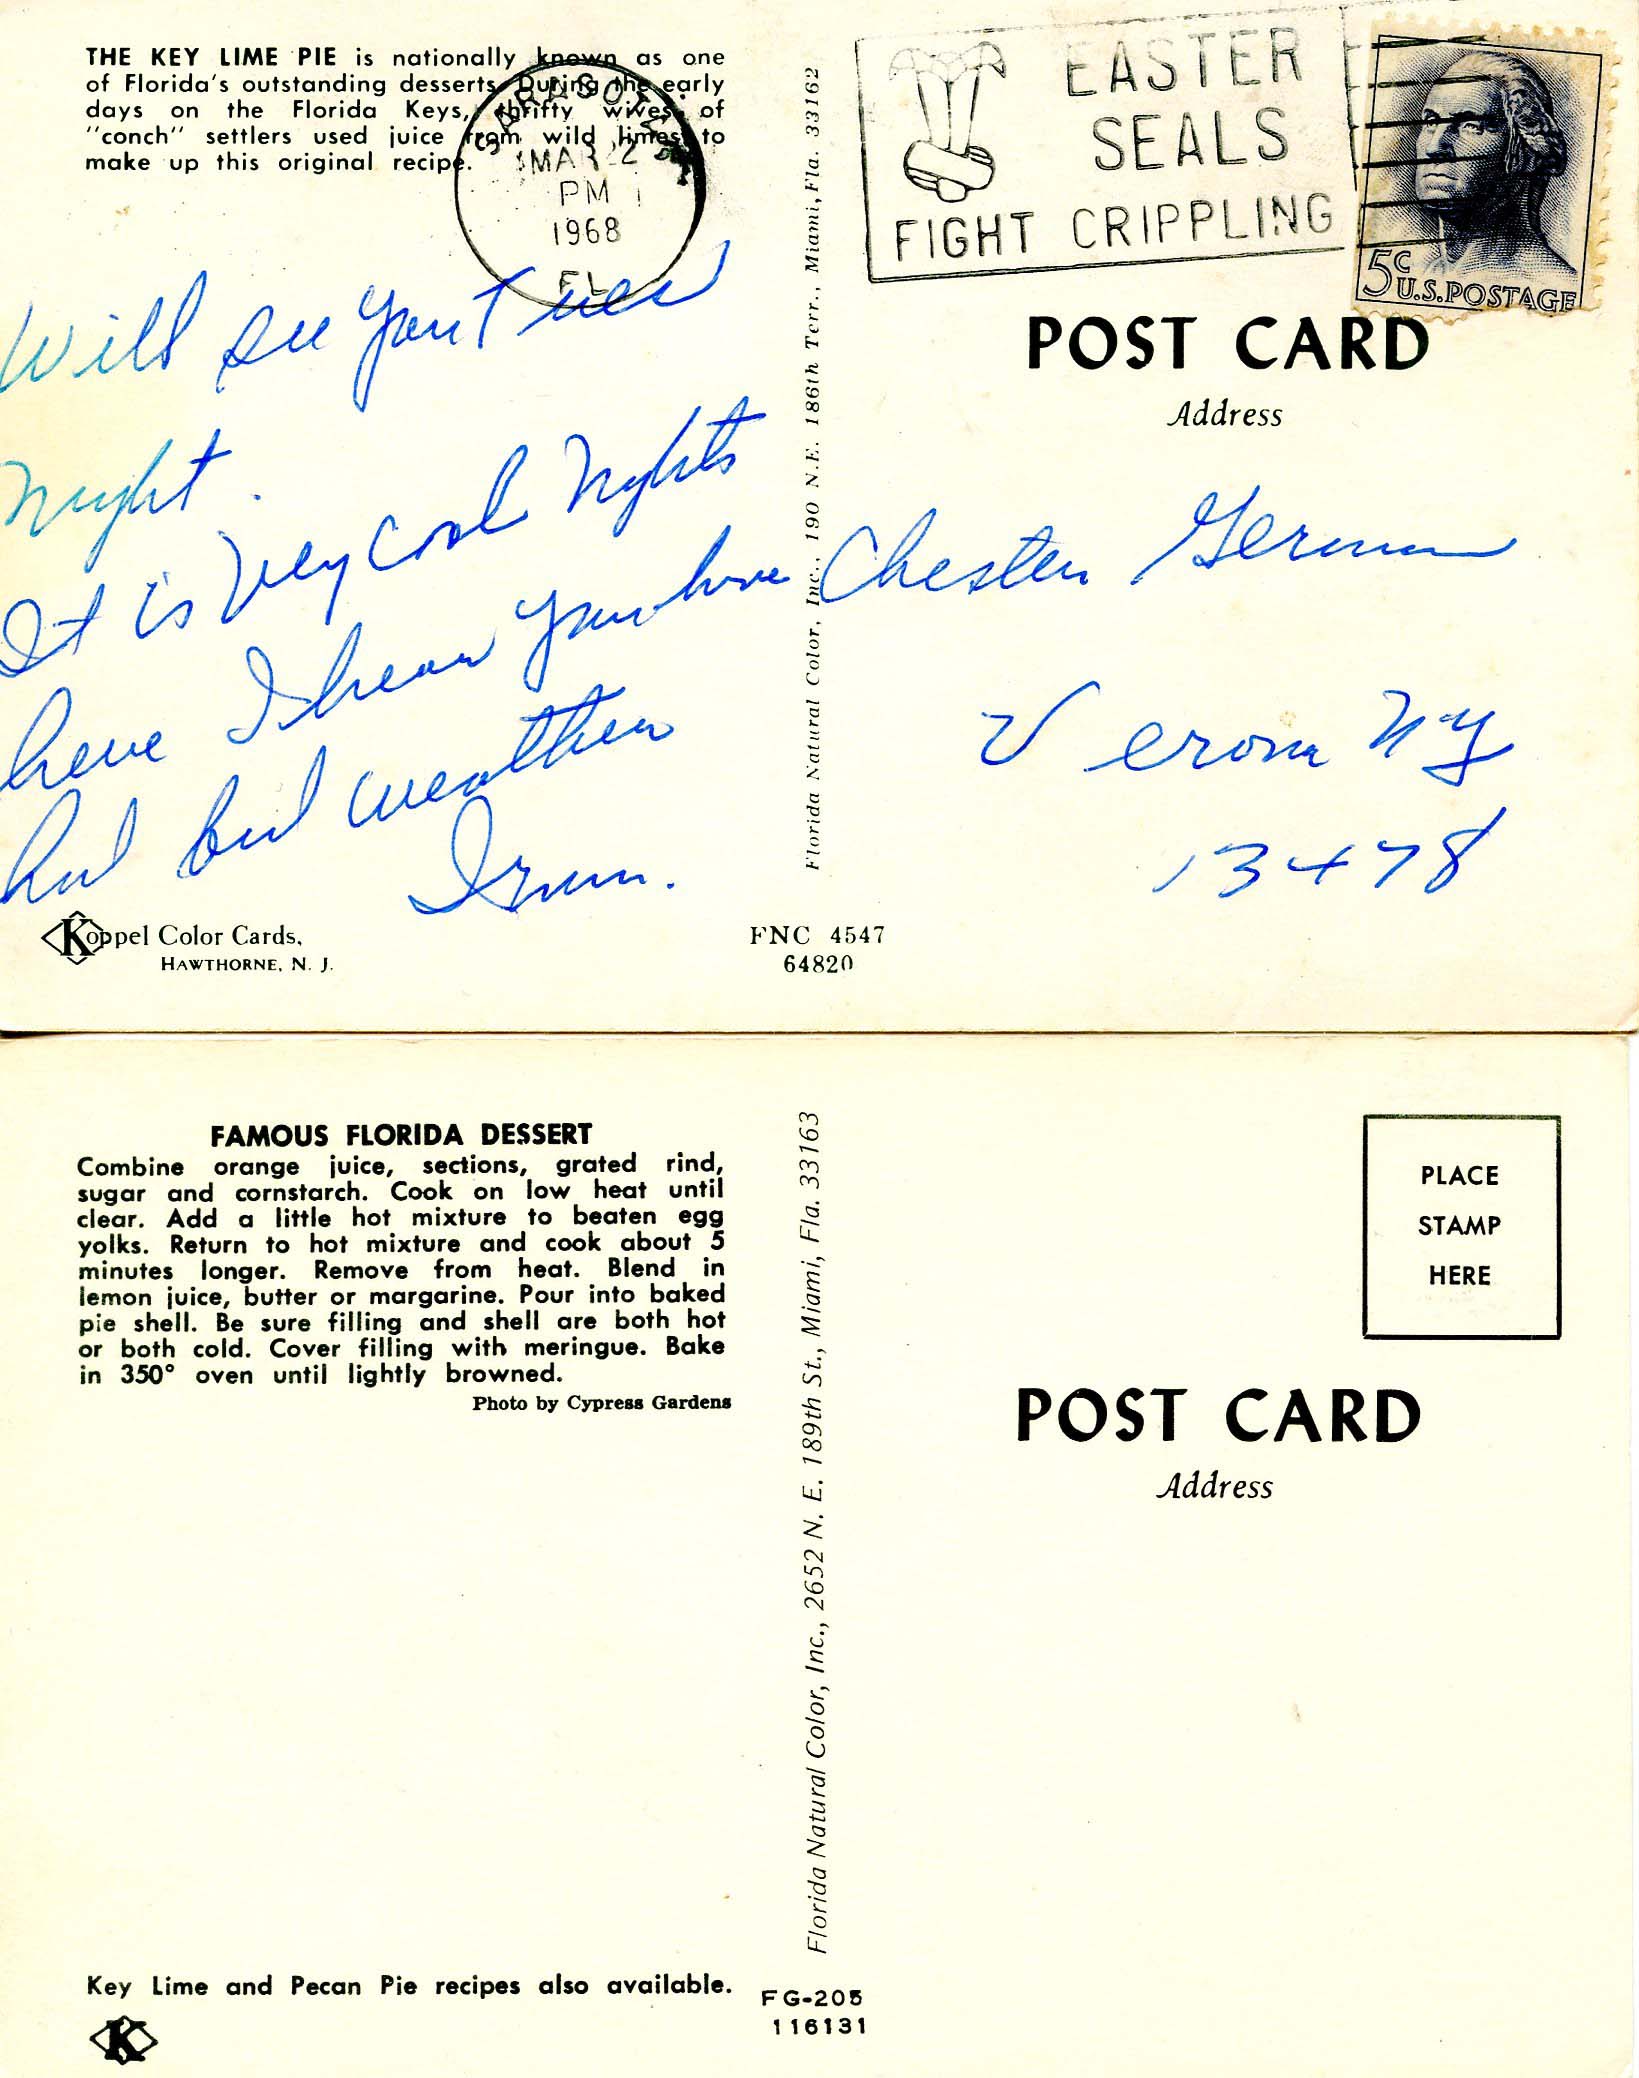 THE KEY LIME PIE is nationally known as one
of Florida's outstanding desserts. During the early
days on the Florida Keys, thrifty wives of
"conch" settlers used juice from wild limes to
make up this original recipe.
SARASOTA
MAR 22
PM
1968
FL
EASTER
SEALS
FIGHT CRIPPLING
5c
U.S.POSTAGE
Will see you Tues
Night.
It is very cool nights
here I hear you have
had bad weather
Florida Natural Color, Inc., 190 N.E. 186th Terr., Miami, Fla. 33162
POST CARD
Address
Chester German
Verona NY
13478
Koppel Color Cards,
HAWTHORNE, N. J.
FNC 4547
64820
FAMOUS FLORIDA DESSERT
Combine orange juice, sections, grated rind,
sugar and cornstarch. Cook on low heat until
clear. Add a little hot mixture to beaten egg
yolks. Return to hot mixture and cook about 5
minutes longer. Remove from heat. Blend in
lemon juice, butter or margarine. Pour into baked
pie shell. Be sure filling and shell are both hot
or both cold. Cover filling with meringue. Bake
in 350° oven until lightly browned.
Photo by Cypress Gardens
Florida Natural Color, Inc., 2652 N. E. 189th St., Miami, Fla. 33163
PLACE
STAMP
HERE
POST CARD
Address
Key Lime and Pecan Pie recipes also available.
FG-205
116131
K